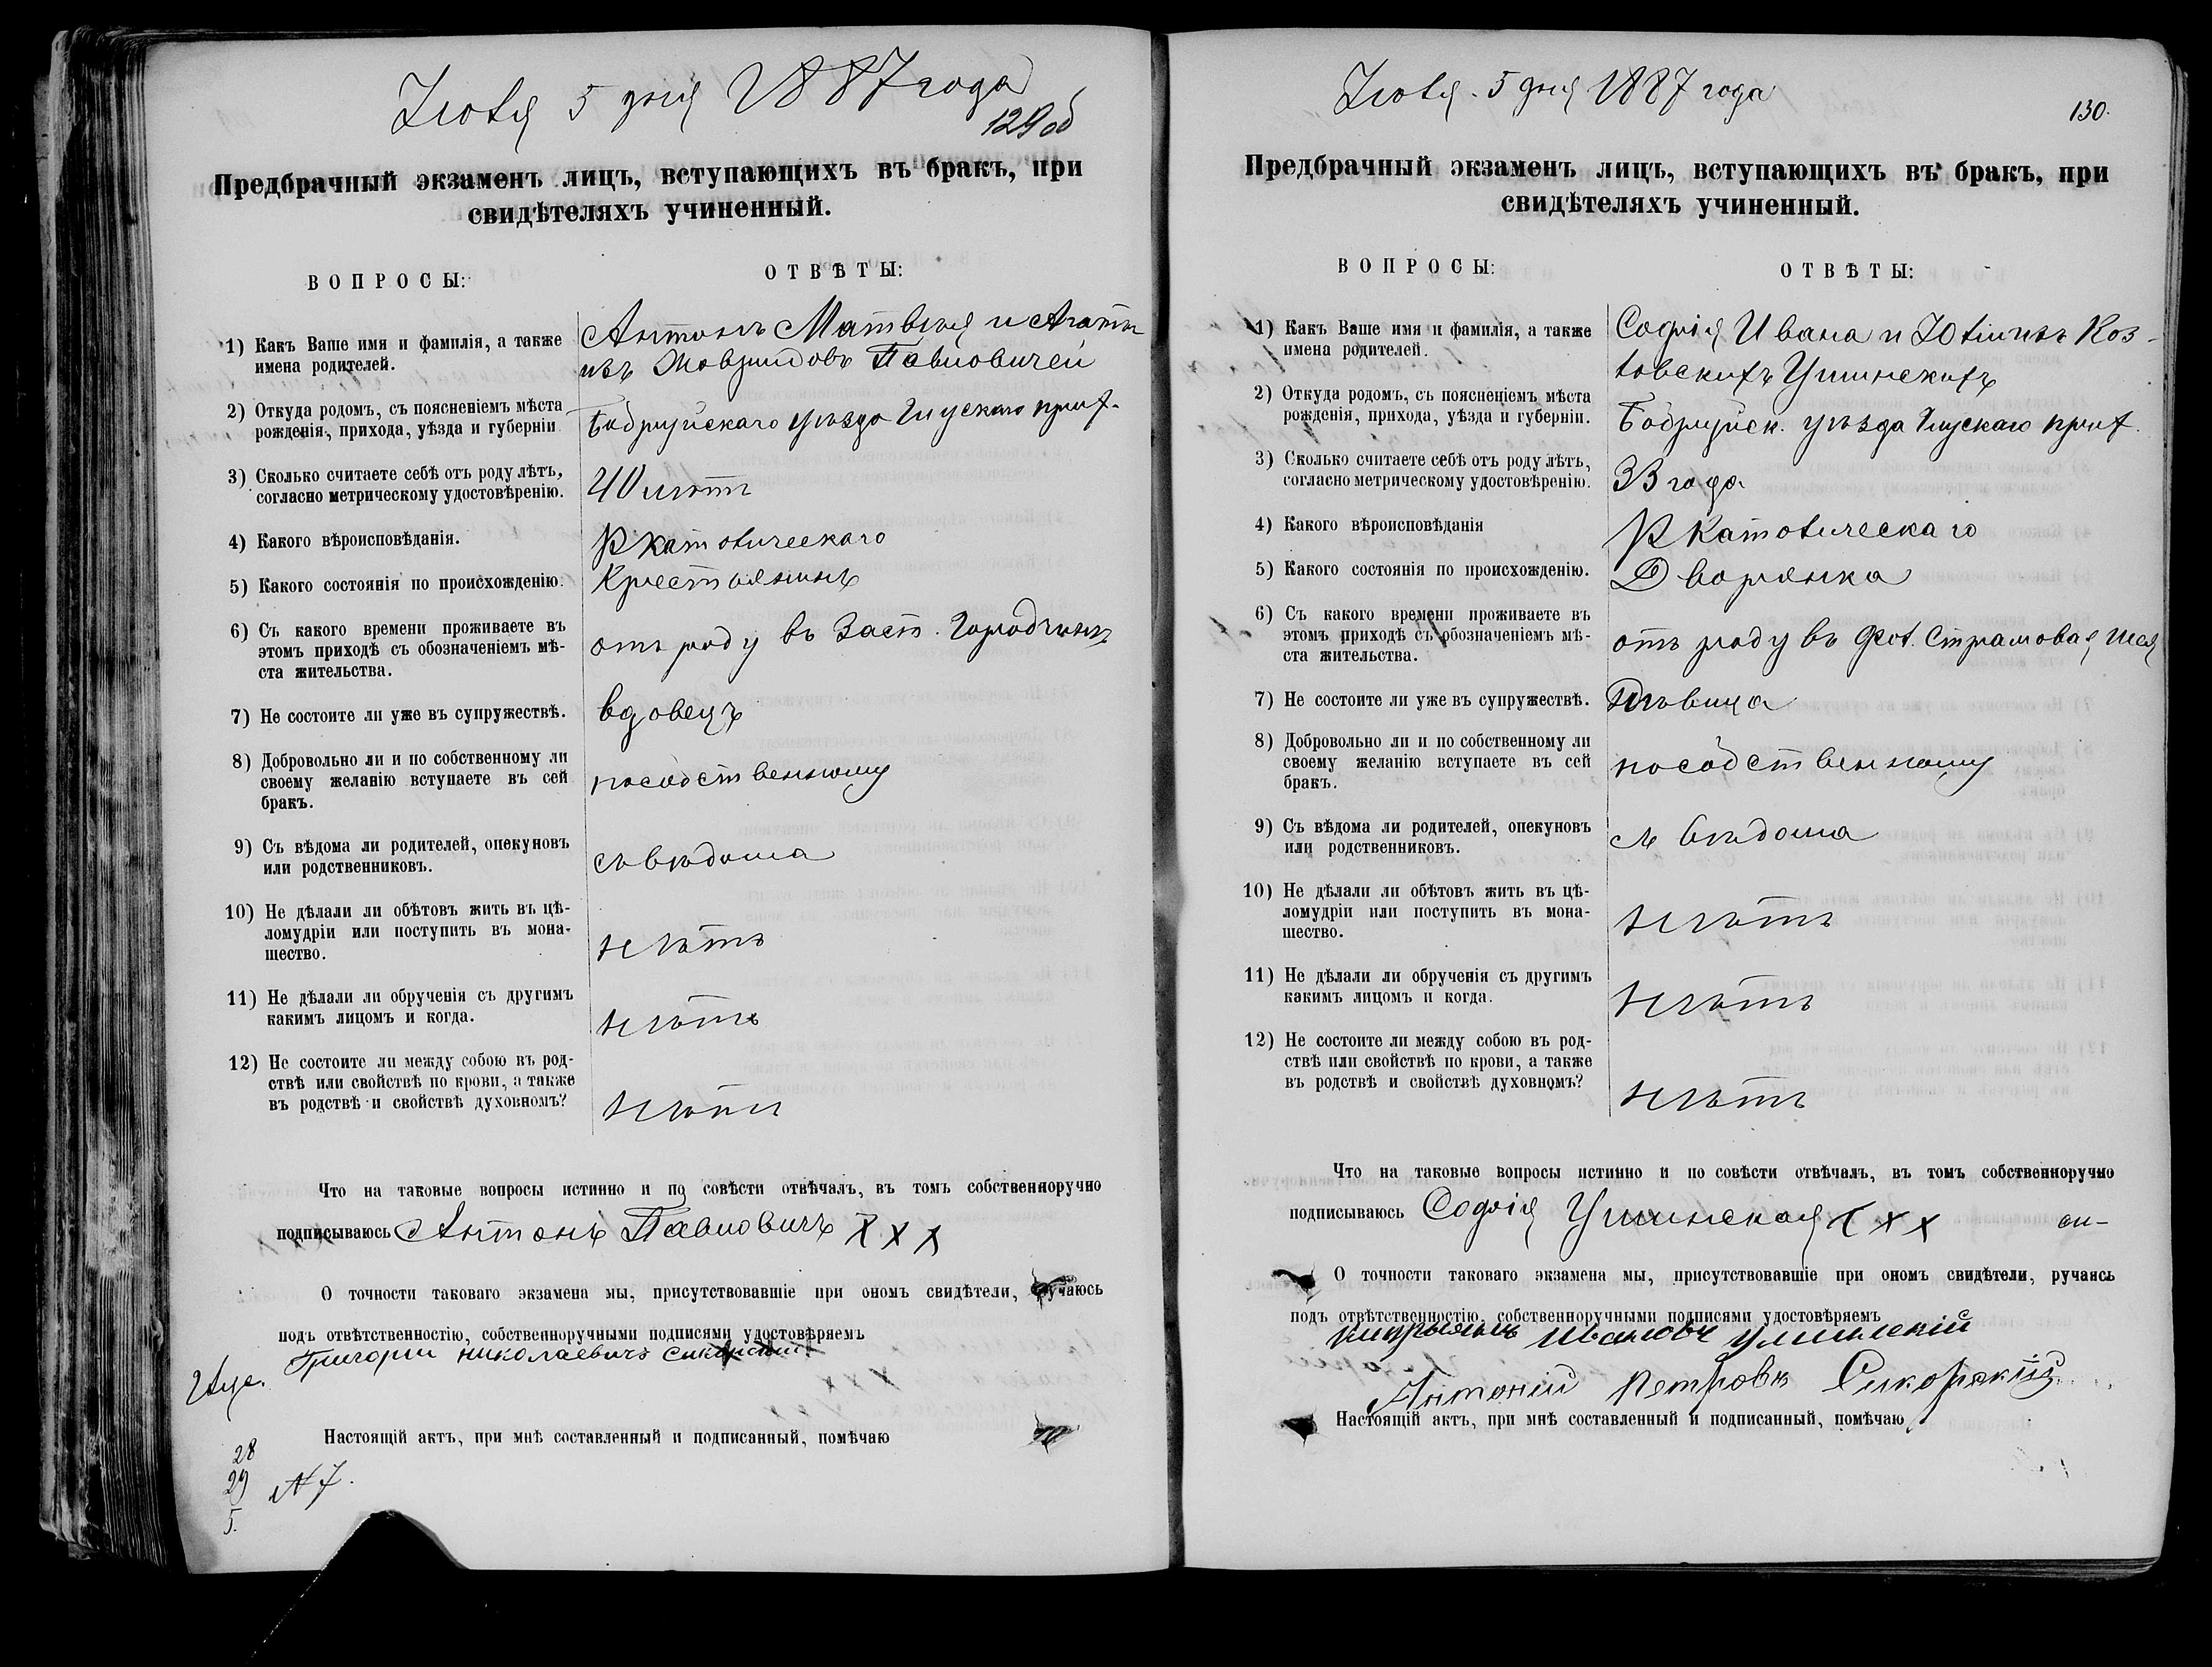 Іюля 5 дня 1887 года
129 об
Предбрачный экзаменъ лицъ, вступающихъ въ бракъ, при
свидѣтеляхъ учиненный.
ВОПРОСЫ:
ОТВѢТЫ:
1) Какъ Ваше имя и фамилія, а также
имена родителей.
Антонъ Матвѣя и Агаты
изъ Павловичей
2) Откуда родомъ, съ поясненіемъ мѣста
рожденія, прихода, уѣзда и губерніи
Бобруйскаго уѣзда Глускаго прих.
3) Сколько считаете себѣ отъ роду лѣтъ,
согласно метрическому удостовѣренію.
40 лѣтъ
4) Какого вѣроисповѣданія.
Р Католическаго
5) Какого состоянія по происхожденію.
Крестьянинъ
6) Съ какого времени проживаете въ
этомъ приходѣ съ обозначеніемъ мѣ-
ста жительства.
отъ роду въ Заст. Городчинъ
7) Не состоите ли уже въ супружествѣ.
вдовецъ
8) Добровольно ли и по собственному ли
своему желанію вступаете въ сей
бракъ.
пособственному
9) Съ вѣдома ли родителей, опекуновъ
или родственниковъ.
съ вѣдома
10) Не дѣлали ли обѣтовъ жить въ цѣ-
ломудріи или поступить въ мона-
шество.
нѣтъ
11) Не дѣлали ли обрученія съ другимъ
какимъ лицомъ и когда.
нѣтъ
12) Не состоите ли между собою въ род-
ствѣ или свойствѣ по крови, а также
въ родствѣ и свойствѣ духовномъ?
нѣтъ
Что на таковые вопросы истинно и по совѣсти отвѣчалъ, въ томъ собственноручно
подписываюсь Антонъ Павловичъ x x x
О точности таковаго экзамена мы, присутствовавшіе при ономъ свидѣтели, ручаюсь
подъ отвѣтственностію, собственноручными подписями удостовѣряемъ
Григорій николаевичъ
Настоящій актъ, при мнѣ составленный и подписанный, помѣчаю
28
29
5.
N 7.
Іюля 5 дня 1887 года
130.
Предбрачный экзаменъ лицъ, вступающихъ въ бракъ, при
свидѣтеляхъ учиненный.
ВОПРОСЫ:
ОТВѢТЫ:
1) Какъ Ваше имя и фамилія, а также
имена родителей.
Софія Ивана и Юліи изъ Коз-
ловскихъ Ушинскихъ
2) Откуда родомъ, съ поясненіемъ мѣста
рожденія, прихода, уѣзда и губерніи.
Бобруйск. уѣзда Глускаго прих.
3) Сколько считаете себѣ отъ роду лѣтъ,
согласно метрическому удостовѣренію.
33 года
4) Какого вѣроисповѣданія
Р Католическаго
5) Какого состоянія по происхожденію.
Дворянка
6) Съ какого времени проживаете въ
этомъ приходѣ съ обозначеніемъ мѣ-
ста жительства.
отъ роду въ Фол.
7) Не состоите ли уже въ супружествѣ.
Дѣвица
8) Добровольно ли и по собственному ли
своему желанію вступаете въ сей
бракъ.
пособственному
9) Съ вѣдома ли родителей, опекуновъ
или родственниковъ.
съ вѣдома
10) Не дѣлали ли обѣтовъ жить въ цѣ-
ломудріи или поступить въ мона-
шество.
нѣтъ
11) Не дѣлали ли обрученія съ другимъ
какимъ лицомъ и когда.
нѣтъ
12) Не состоите ли между собою въ род-
ствѣ или свойствѣ по крови, а также
въ родствѣ и свойствѣ духовномъ?
нѣтъ
Что на таковые вопросы истинно и по совѣсти отвѣчалъ, въ томъ собственноручно
подписываюсь Софія Ушинская x x x
О точности таковаго экзамена мы, присутствовавшіе при ономъ свидѣтели, ручаясь
подъ отвѣтственностію, собственноручными подписями удостовѣряемъ
Ивановъ
Антоній Петровъ Сикорскій
Настоящій актъ, при мнѣ составленный и подписанный, помѣчаю